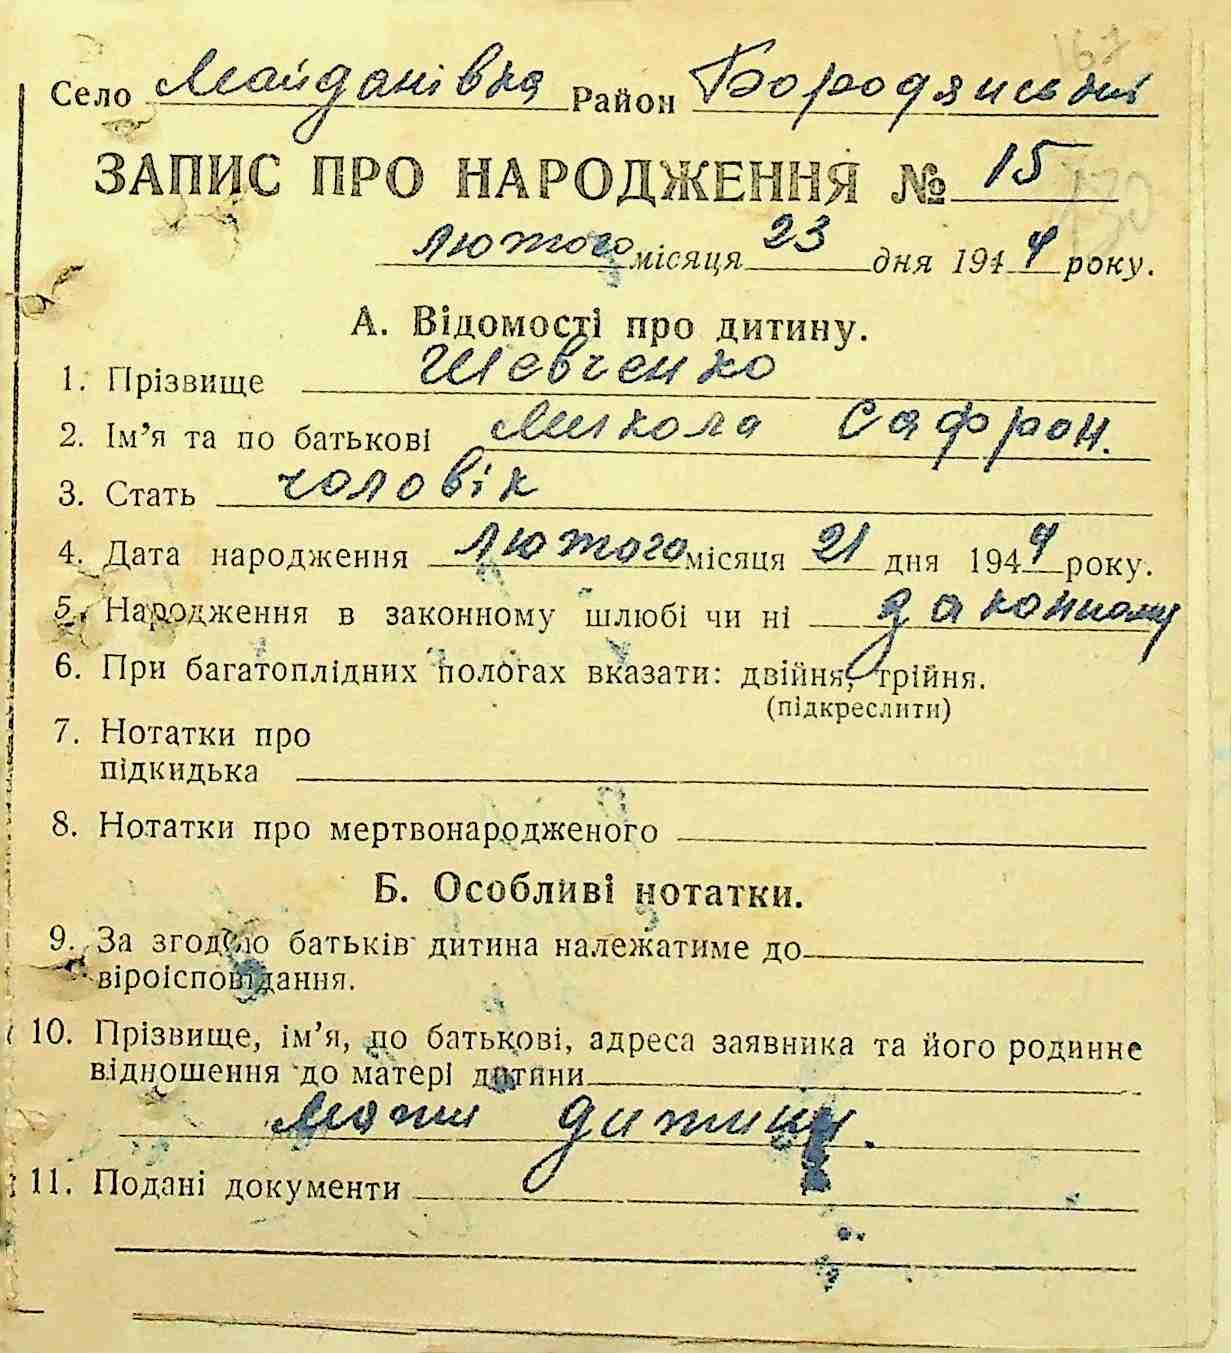 167
Село Майданівка Район Бородянський
ЗАПИС ПРО НАРОДЖЕННЯ № 15
130
лютого місяця 23 дня 1944 року.
А. Відомості про дитину.
1. Прізвище Шевченко
2. Ім’я та по батькові Микола Сафрон.
3. Стать чоловік
4. Дата народження лютого місяця 21 дня 1944 року.
5. Народження в законному шлюбі чи ні законному
6. При багатоплідних пологах вказати: двійня, трійня.
(підкреслити)
7. Нотатки про
підкидька
8. Нотатки про мертвонародженого
Б. Особливі нотатки.
9. За згодою батьків дитина належатиме до
віроісповідання.
10. Прізвище, ім’я, по батькові, адреса заявника та його родинне
відношення до матері дитини
мати дитини.
11. Подані документи